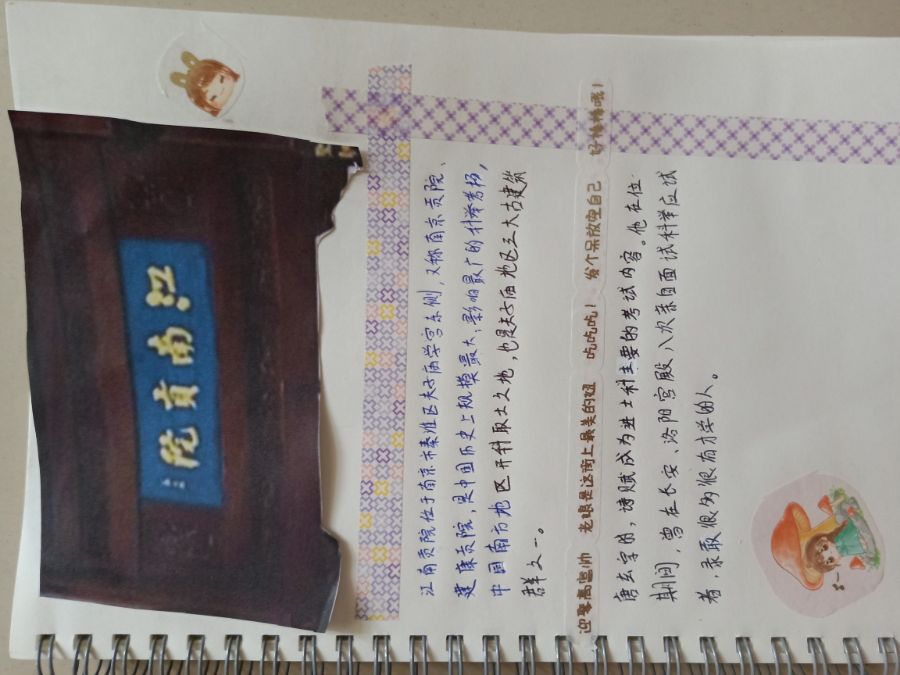 江南貢院
江南贡院位于南京市秦淮区夫子庙学宫东侧,又称南京贡院、
建康贡院,是中国历史上规模最大、影响最广的科举考场,
中国南方地区开科取士之地,也是夫子庙地区三大古建筑
群之一。
迎娶高富帅 老娘是这街上最美的妞 吃吃吃! 发个呆放空自己 好棒棒哦!
唐玄宗时,诗赋成为进士科主要的考试内容。他在位
期间,曾在长安、洛阳宫殿八次亲自面试科举应试
者,录取很多很有才学的人。